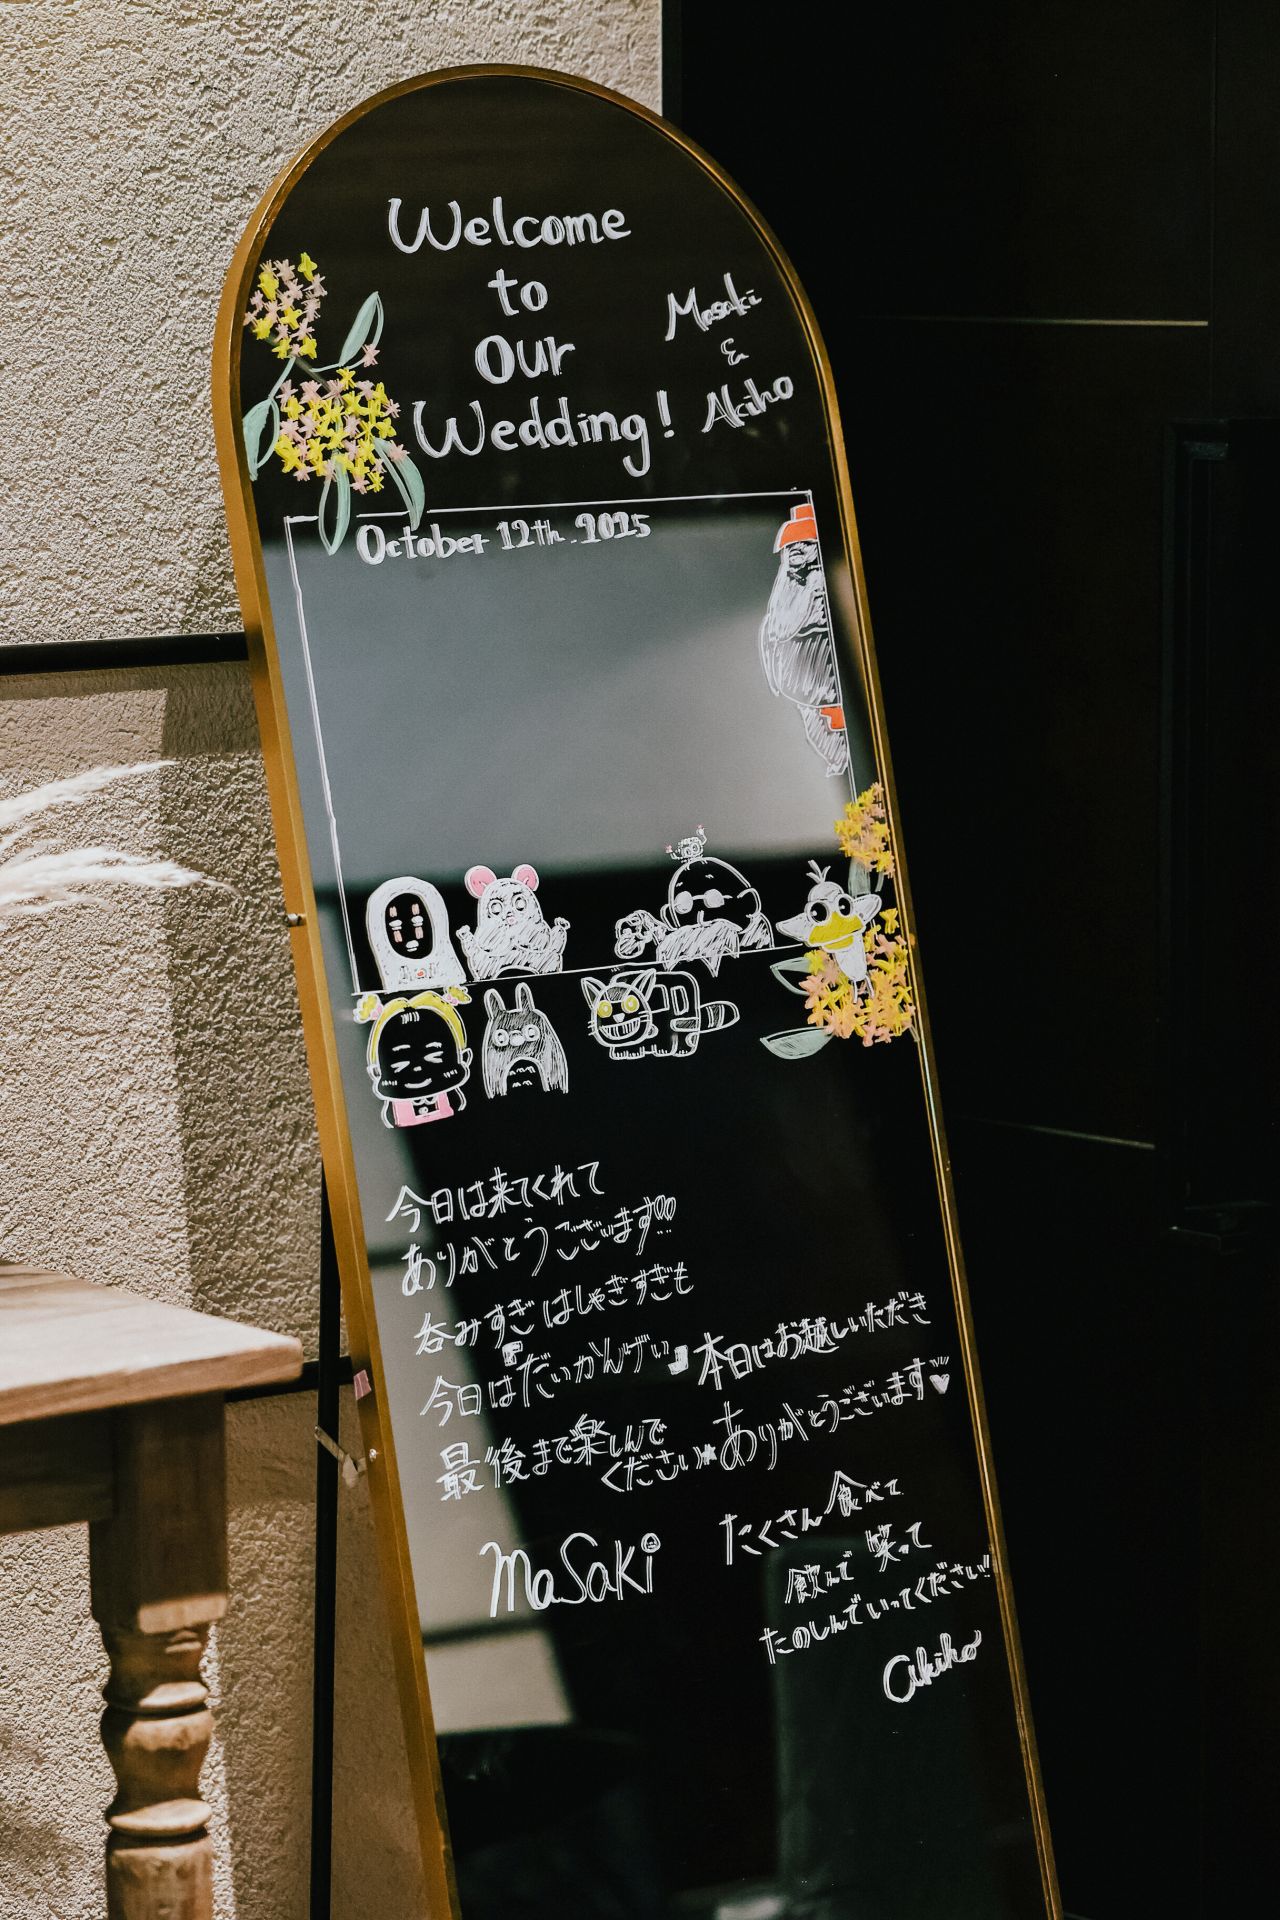 Welcome
to
Our
Wedding!
Masaki
&
Akiho
October 12th. 2025
今日は来てくれて
ありがとうございます!!!
呑みすぎはしゃぎすぎも
今日は『だいかんげい』
最後まで楽しんで
ください★
MaSaki
本日はお越しいただき
ありがとうございます♥
たくさん食べて
飲んで 笑って
たのしんでいってください!!
akiho